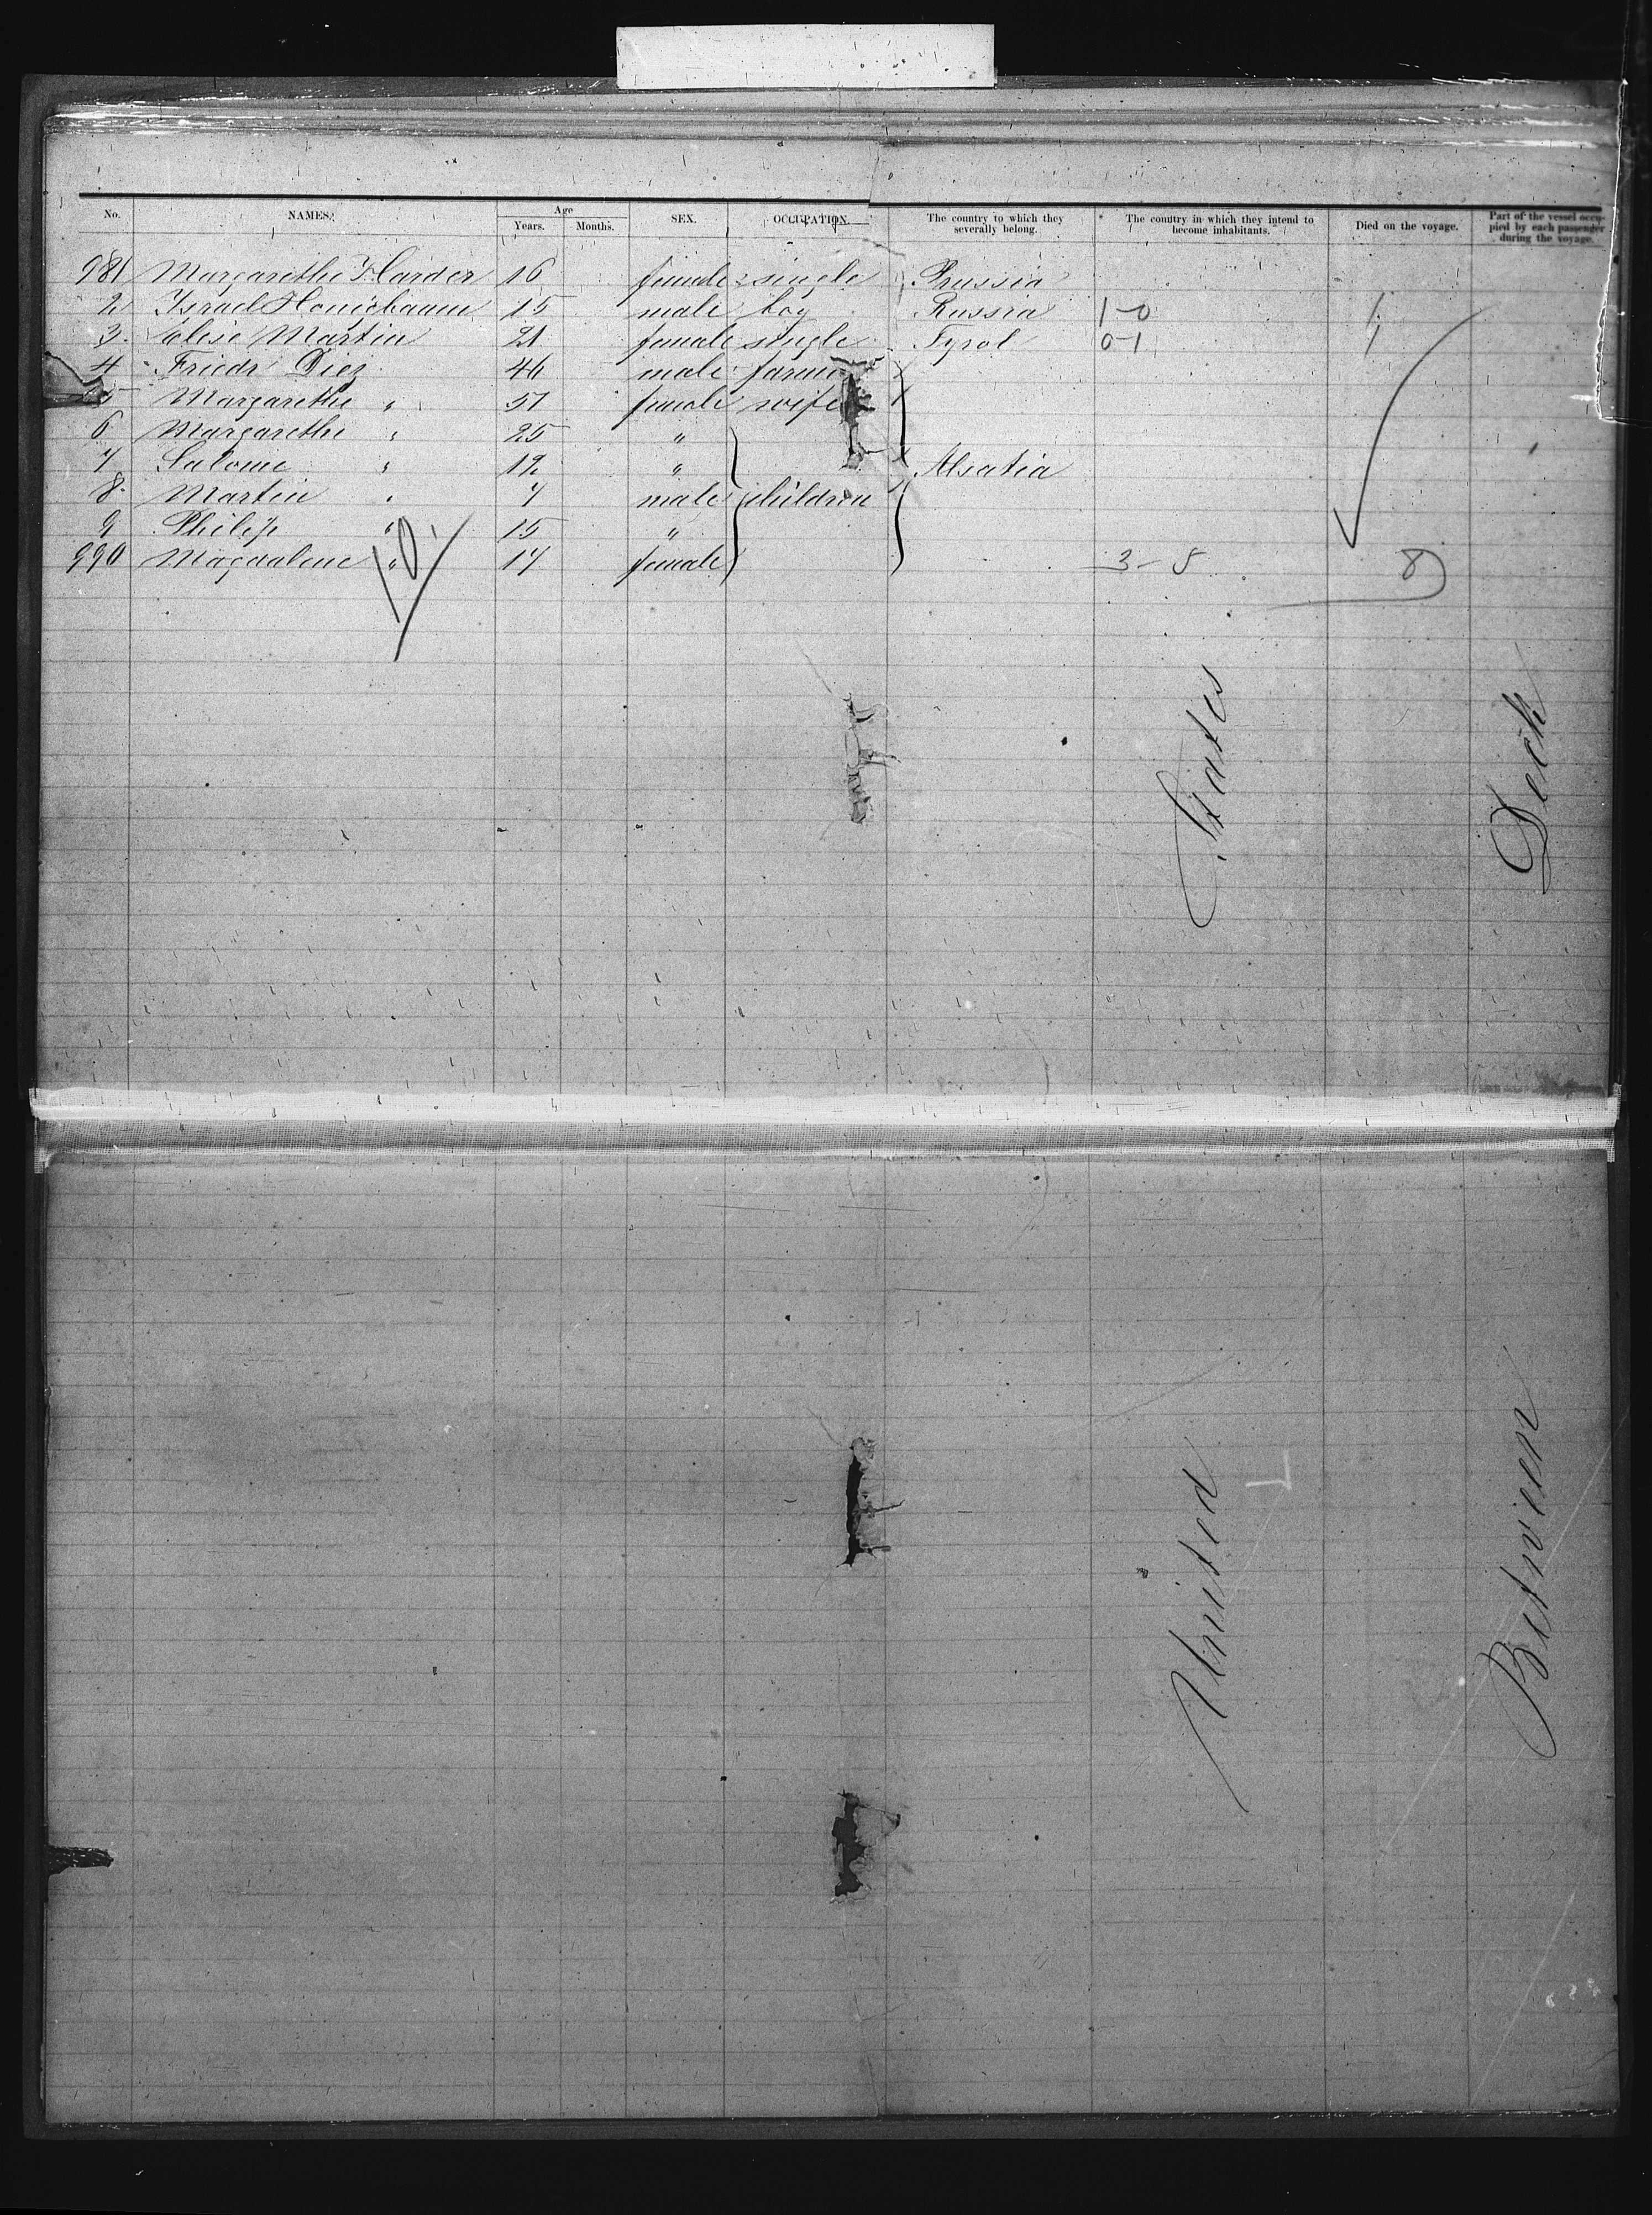 No. NAMES. Age Years. Months. SEX. OCCUPATION. The country to which they severally belong. The country in which they intend to become inhabitants. Died on the voyage. Part of the vessel occupied by each passenger during the voyage.
981 Margarethe Harder 16 female single Prussia
2 Israel Honigbaum 15 male boy Russia 1-0 1
3 Elise Martin 21 female single Tyrol 0-1 1
4 Friedr Diez 46 male farmer
5 Margarethe " 51 female wife
6 Margarethe " 25 "
7 Salome " 12 " Alsatia
8 Martin " 7 male children
9 Philip " 15 "
990 Magdalene " 17 female 3-5 8
10
United States
Between Deck